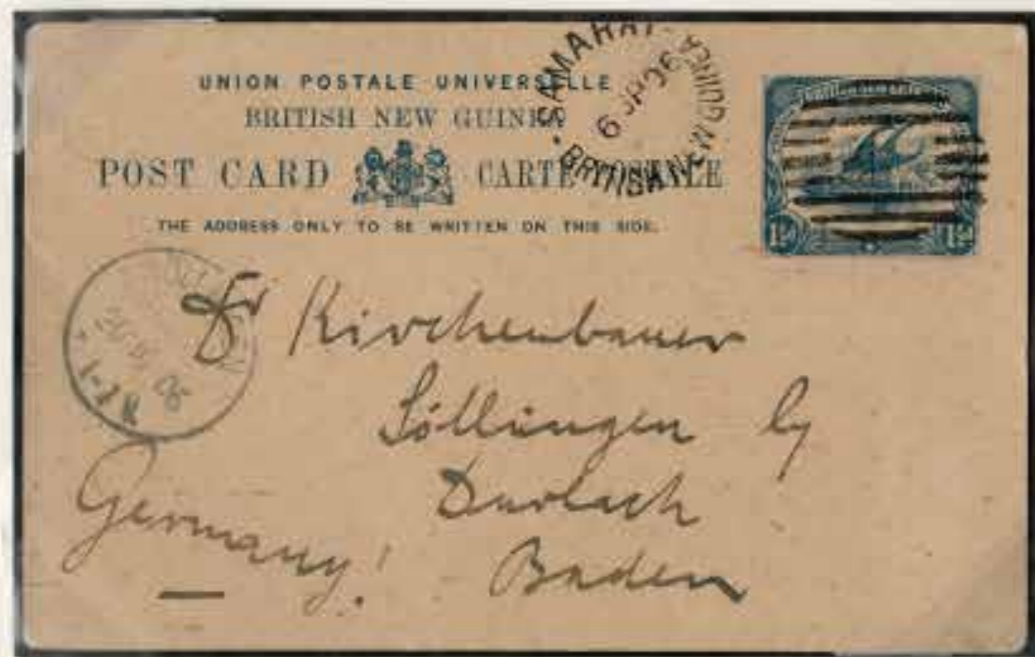 UNION POSTALE UNIVERSELLE
BRITISH NEW GUINEA
POST CARD CARTE POSTALE
THE ADDRESS ONLY TO BE WRITTEN ON THIS SIDE.
SAMARAI
BRITISH NEW GUINEA
1½d 1½d
Kirchenbauer
Söllingen by
Durlach
Baden
Germany!